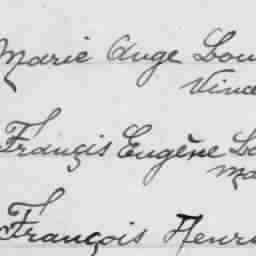 Marie Ange Lou
Vince
Françis Eugène Lo
Ma
François Henri